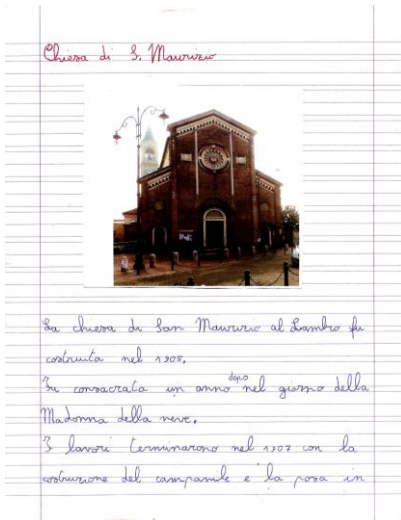 Chiesa di S. Maurizio
La chiesa di San Maurizio al Lambro fu
costruita nel 1905.
Fu consacrata un anno dopo nel giorno della
Madonna della neve.
I lavori terminarono nel 1907 con la
costruzione del campanile e la posa in